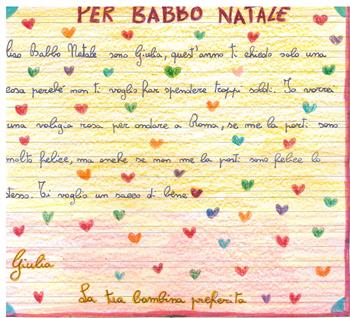 PER BABBO NATALE
Ciao Babbo Natale sono Giulia, quest'anno ti chiedo solo una
cosa perché non ti voglio far spendere troppi soldi. Io vorrei
una valigia rosa per andare a Roma, se me la porti sono
molto felice, ma anche se non me la porti sono felice lo
stesso. Ti voglio un sacco di bene
Giulia
La tua bambina preferita